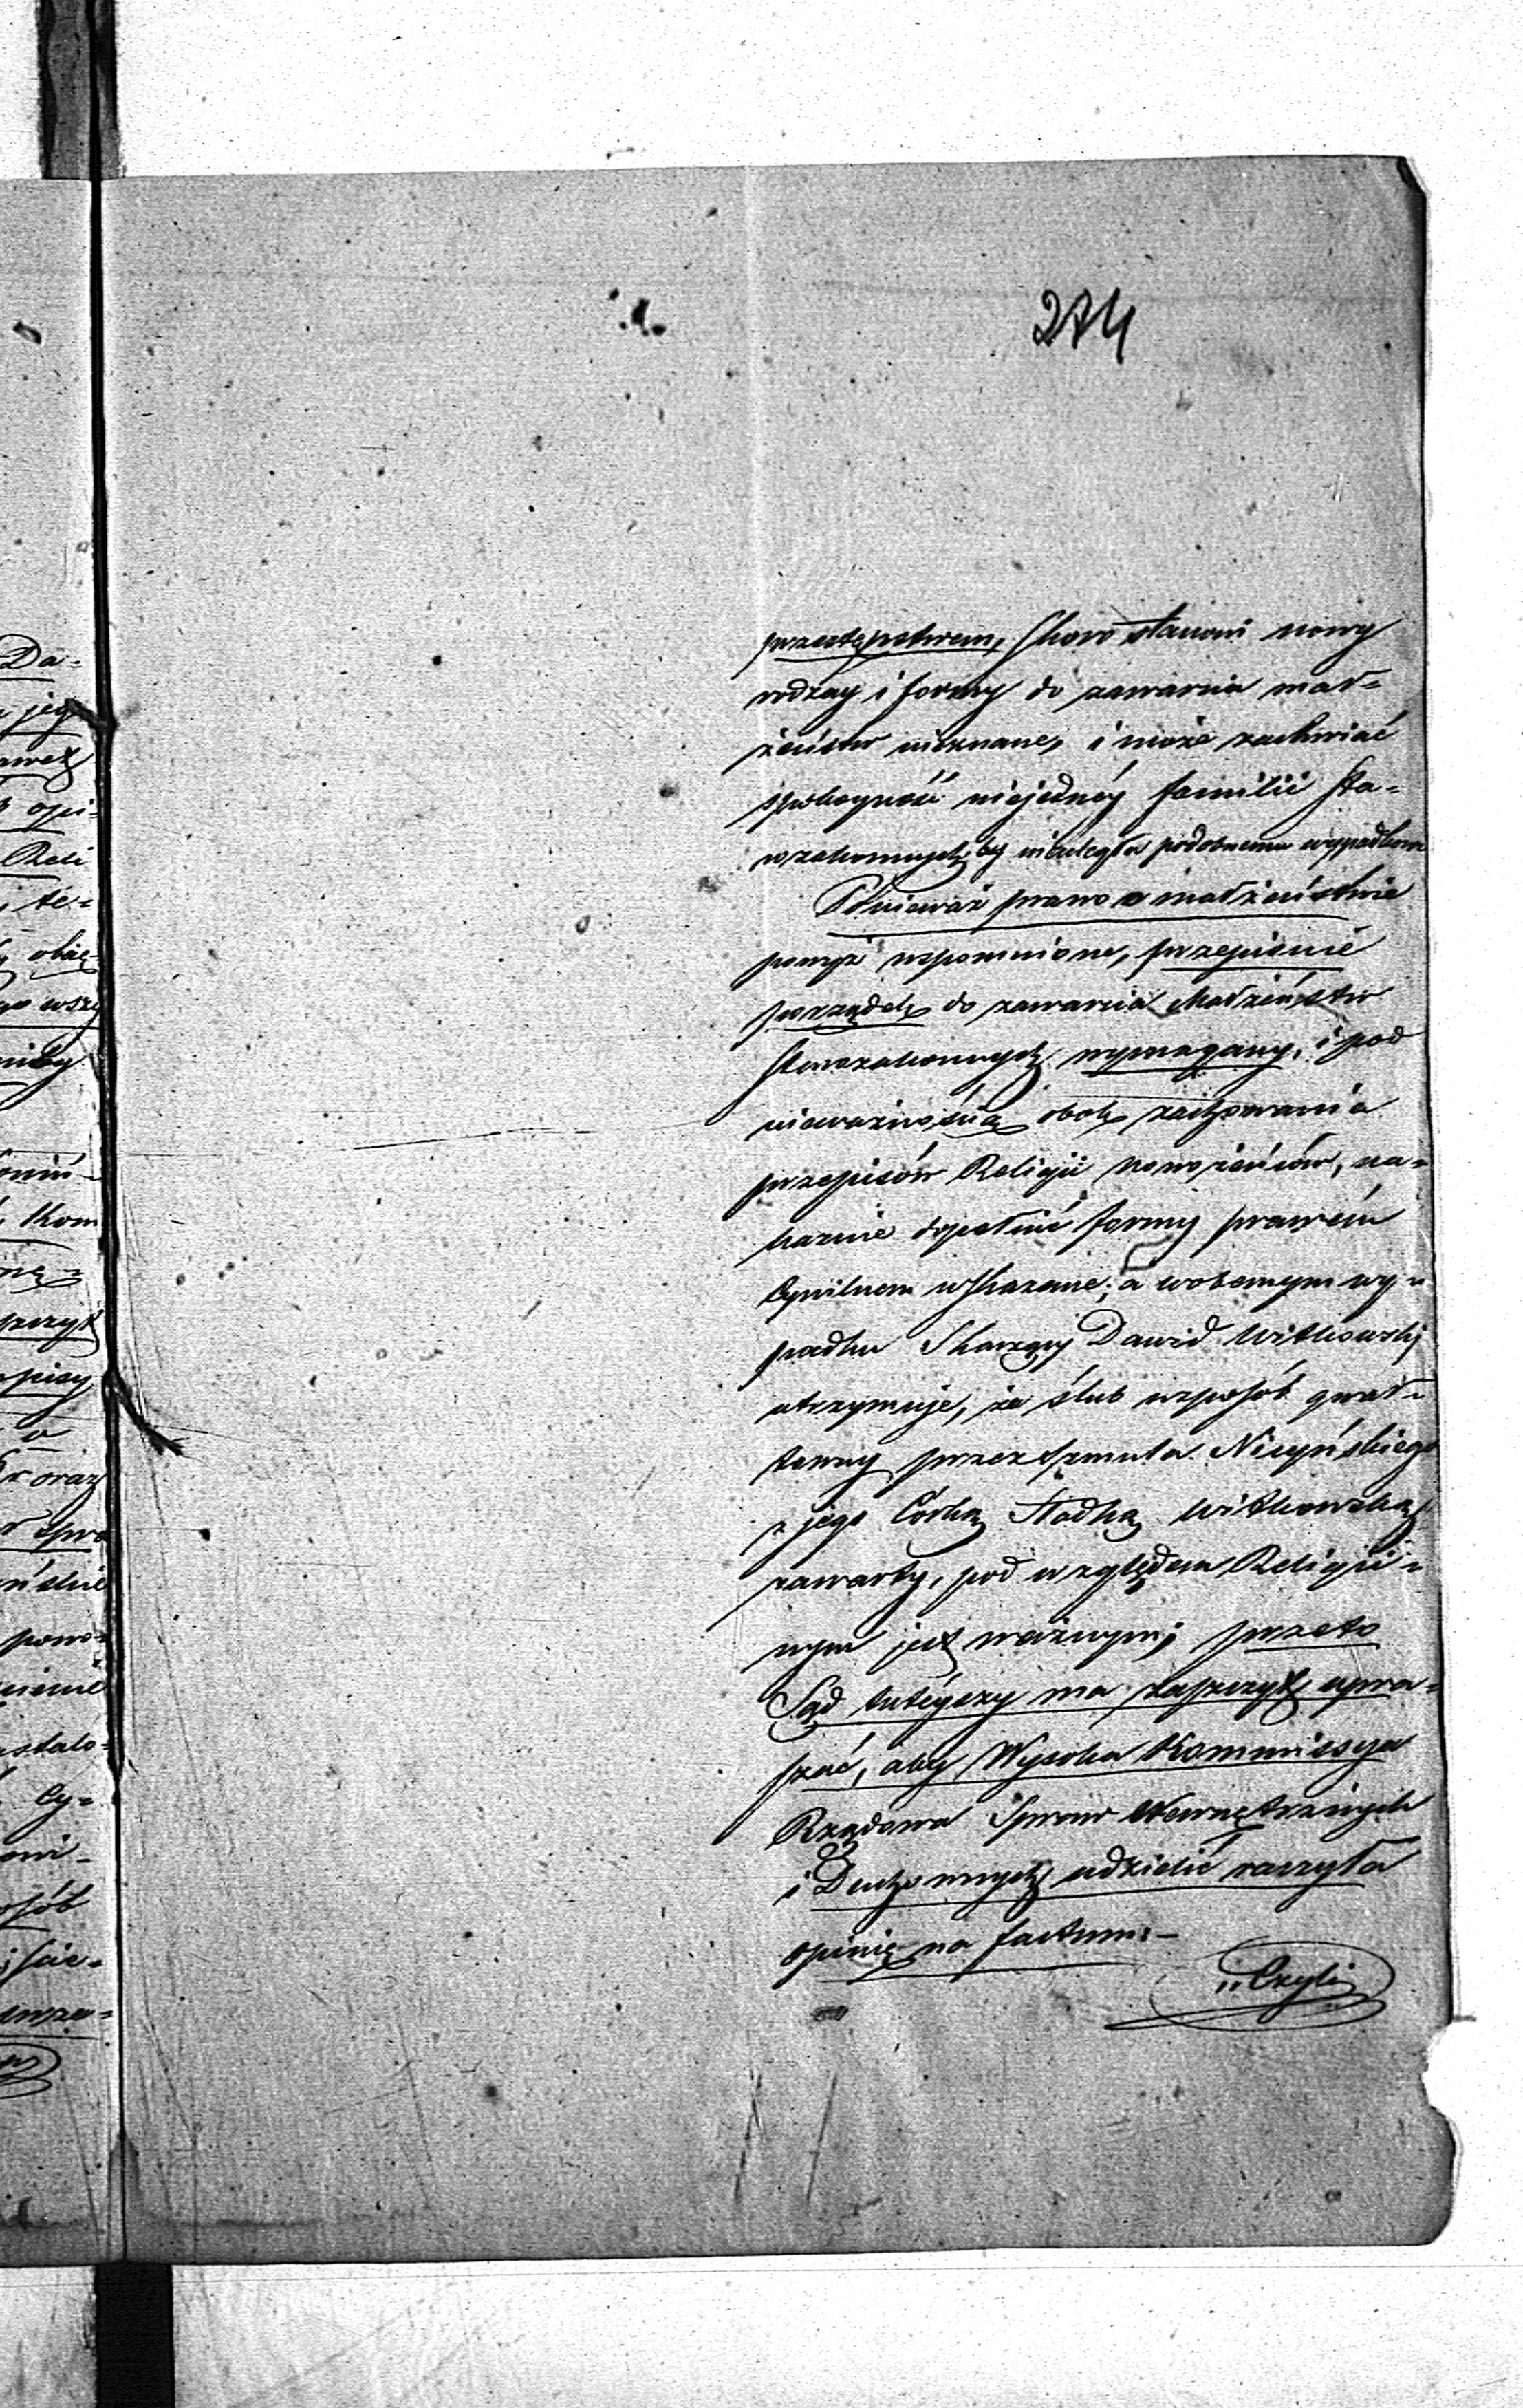 274
przestępstwem, skoro stanowi nowy
rodzay i formy do zawarcia mał=
żeństw nieznane, i może zachwiać
spokoyność niejednéy familii sta=
rozakonnych, by nieuległa podobnemu wypadkowi
Ponieważ prawo o małżeństwie
powyż wspomnione, przepisuié
porządek do zawarcia Małżeństw
starozakonnych wymagany, i pod
nieważnością obok zachowania
przepisów Religii nowożeńców, na=
kazuie dopełnić formy prawem
Cywilnem wskazane; a wobecnym wy=
padku Skarżący Dawid Witkowski
utrzymuje, że ślub wsposób gwał=
towny przez Szmula Nicyńskiego
z jego Córką Hadką Witkowską
zawarty, pod względem Religii=
nym jest ważnym; przeto
Sąd tutéyszy ma zaszczyt upra=
szać, aby Wysoka Kommissya
Rządowa Spraw Wewnętrznych
i Duchownych udzielić raczyła
opinię na factum:—
"Czyli
Da=
jego
nawet
opi=
Reli
te=
obię=
wszy
Kom
pisy
oraz
powo=
Cy=